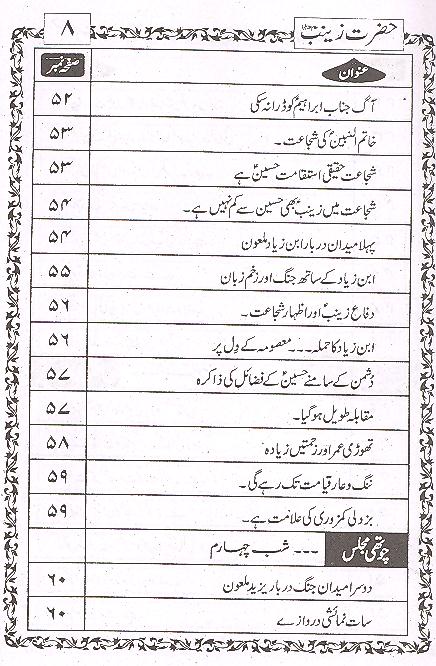 حضرت زینبؑ ۸
عنوان صفحہ نمبر
آگ جناب ابراہیمؑ کو ڈرا نہ سکی ۵۲
خاتم النبیینؐ کی شجاعت۔ ۵۳
شجاعت حقیقی استقامت حسینؑ ہے ۵۳
شجاعت میں زینبؑ بھی حسینؑ سے کم نہیں ہے۔ ۵۴
پہلا میدان دربار ابن زیاد ملعون ۵۴
ابن زیاد کے ساتھ جنگ اور زخم زبان ۵۵
دفاع زینبؑ اور اظہار شجاعت۔ ۵۶
ابن زیاد کا حملہ۔۔۔ معصومہ کے دل پر ۵۶
دشمن کے سامنے حسینؑ کے فضائل کی ذاکرہ ۵۷
مقابلہ طویل ہو گیا۔ ۵۷
تھوڑی عمر اور زحمتیں زیادہ ۵۸
ننگ و عار قیامت تک رہے گی۔ ۵۹
بزدلی کمزوری کی علامت ہے۔ ۵۹
چوتھی مجلس ۔۔۔ شب چہارم
دوسرا میدان جنگ دربار یزید ملعون ۶۰
سات نمائشی دروازے ۶۰